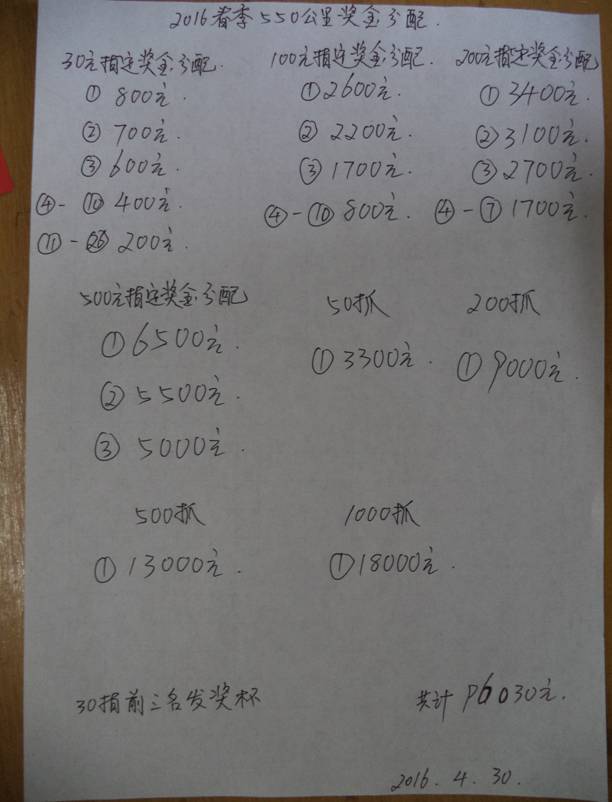 2016春季550公里奖金分配.
30元指定奖金分配.
① 800元.
② 700元.
③ 600元.
④-⑩ 400元.
⑪-㉖ 200元.
100元指定奖金分配.
① 2600元.
② 2200元.
③ 1700元.
④-⑩ 800元.
200元指定奖金分配.
① 3400元.
② 3100元.
③ 2700元.
④-⑦ 1700元.
500元指定奖金分配
① 6500元.
② 5500元.
③ 5000元.
50抓
① 3300元.
200抓
① 9000元.
500抓
① 13000元.
1000抓
① 18000元.
30指前三名发奖杯
共计 96030元.
2016.4.30.